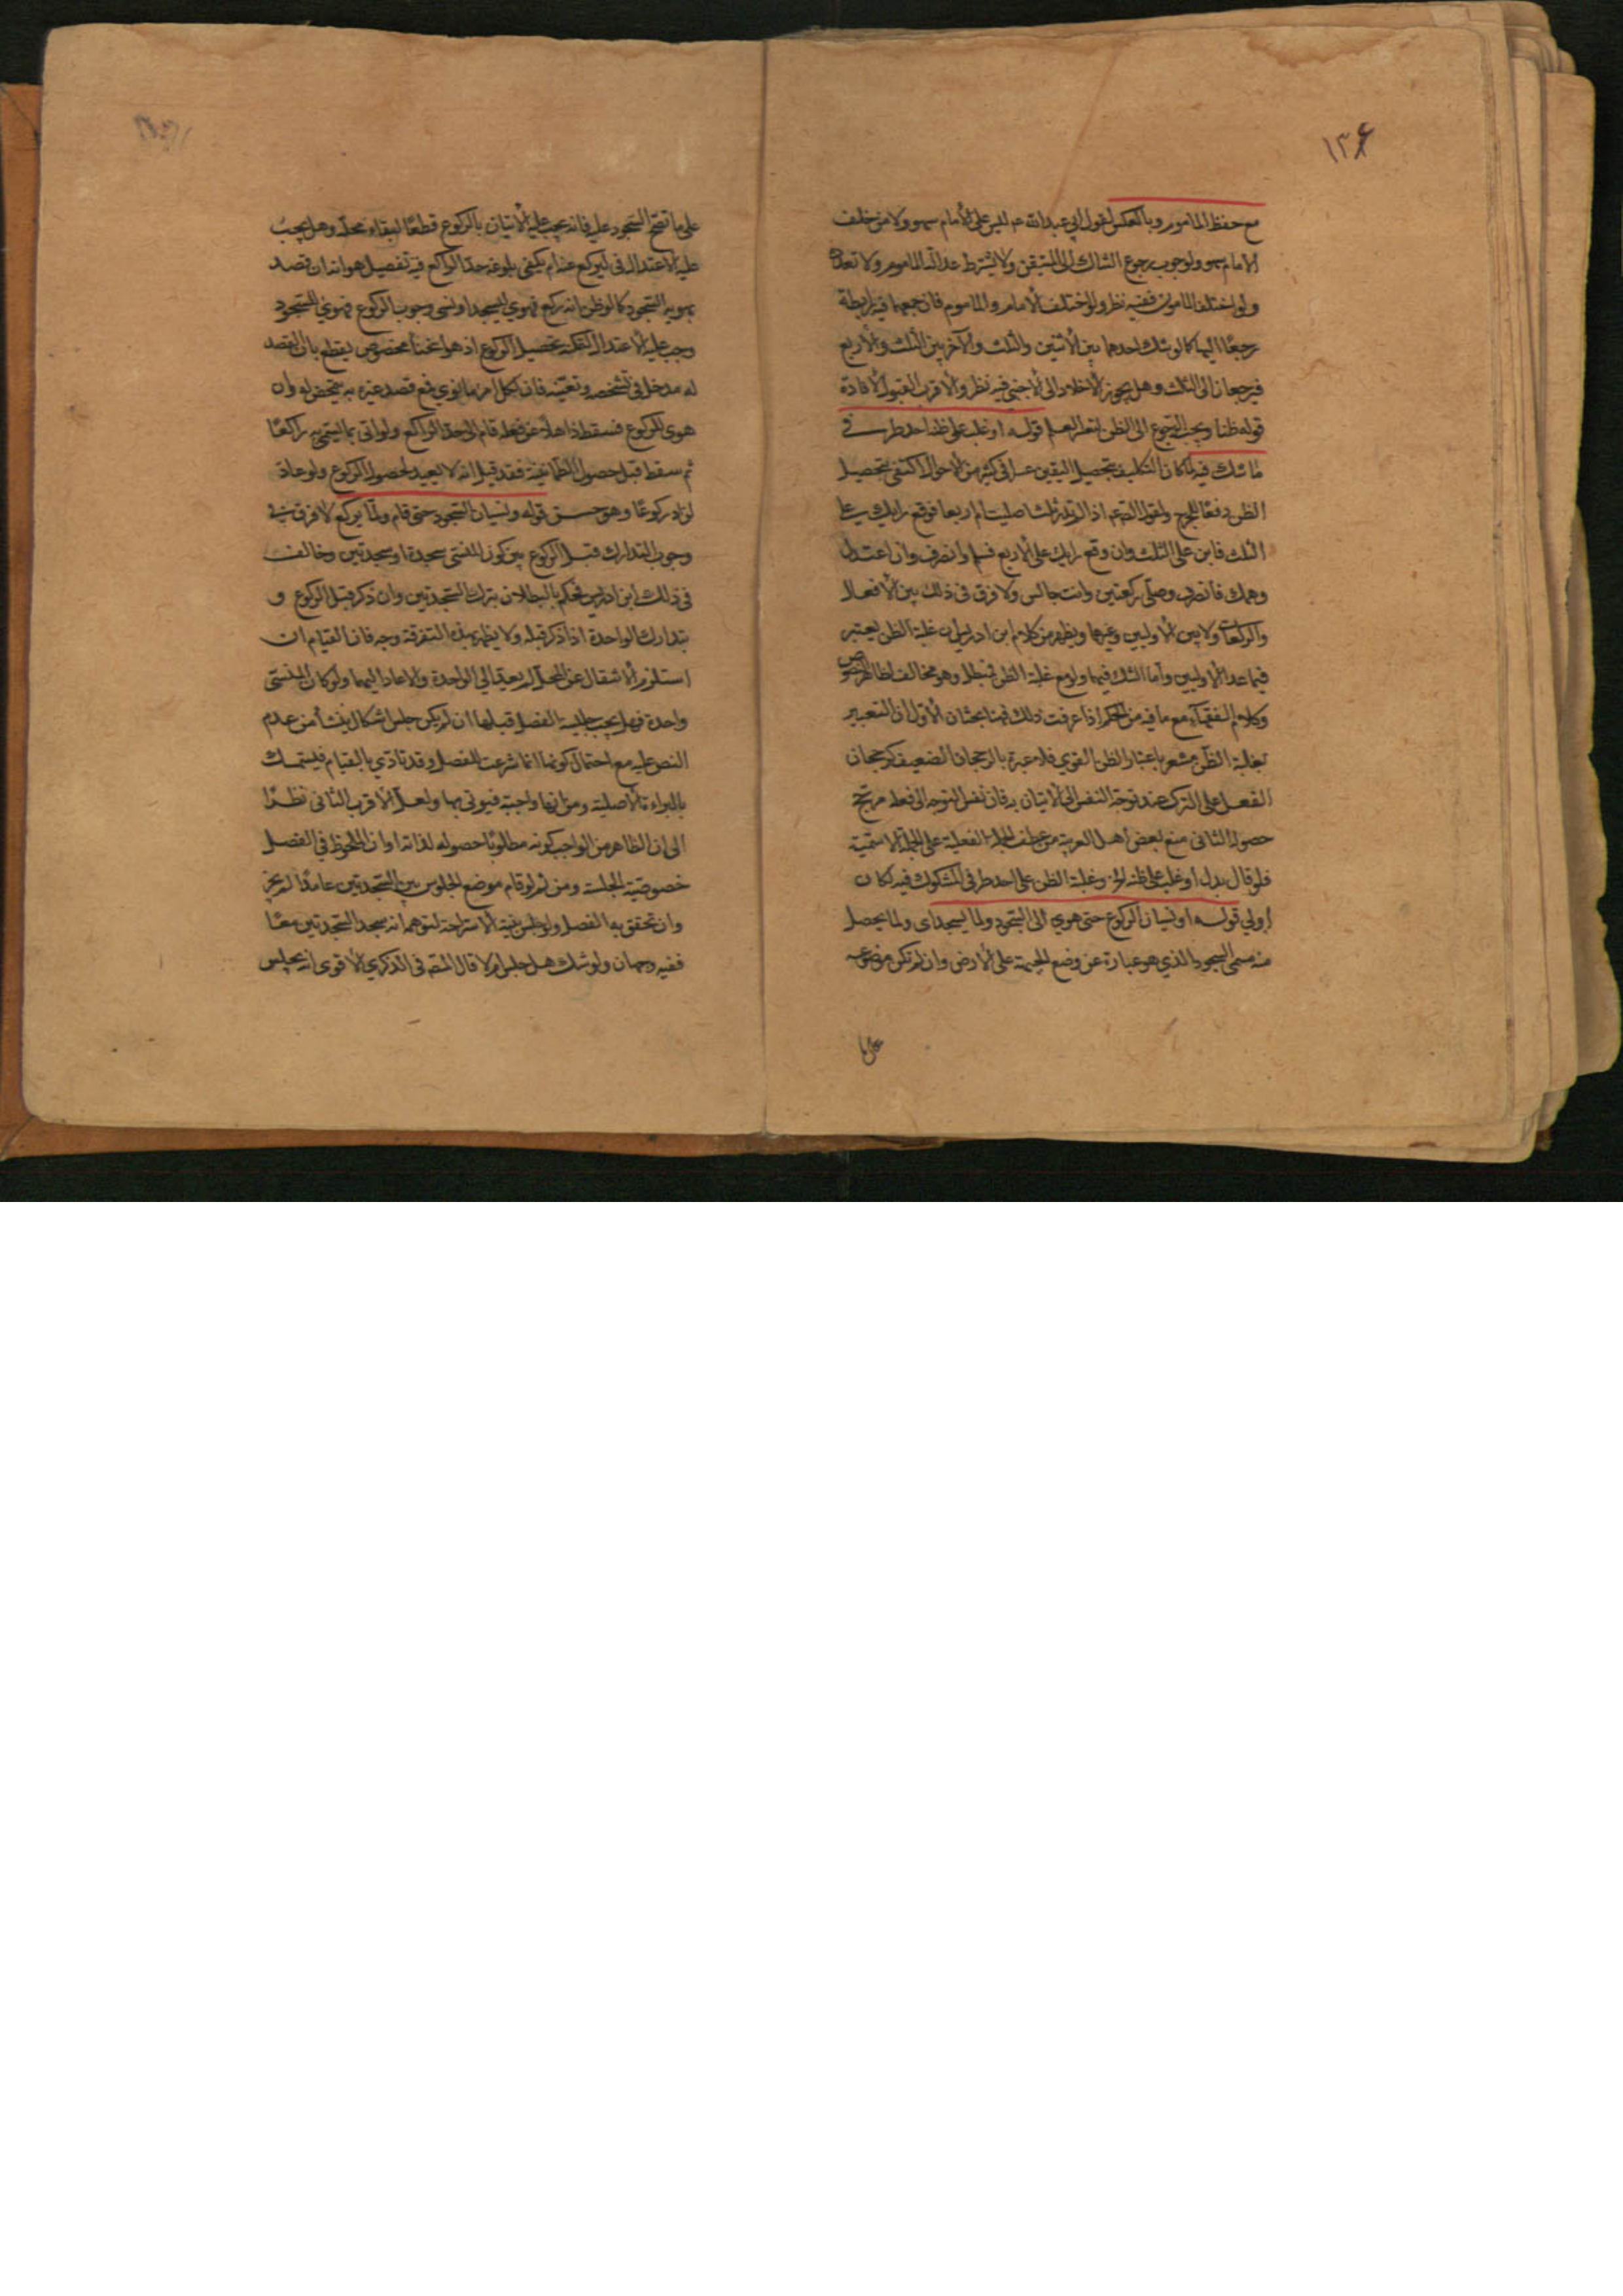 ١٣٤
مع حفظ المأموم وبالعكس لقول ابي عبدالله عم ليس على الامام سهو ولا من خلف
الامام سهو ولوجوب رجوع الشاك الى المتيقن ولا يشترط عدالة المأموم ولا تعدده
ولو اختلف المأمون ففيه نظر ولو اختلف الامام والمأموم فان جمعهما فيه رابطة
رجعا اليها كما لو شك احدهما بين الاثنين والثلث والآخر بين الثلث والاربع
فيرجعان الى الثلث وهل يجوز الى الاجنبي فيه نظر والاقرب القبول لافادة
قوله ظنا ويجب الرجوع الى الظن تعذر العلم قوله او غلب على ظنه احد طرفي
ما شك فيه لما كان التكليف بتحصيل اليقين عسرا في كثير من الاحوال اكتفى بتحصيل
الظن دفعا للحرج ولقول الصم اذا لم تدر ثلثا صليت ام اربعا فوقع رايك على
الثلث فابن على الثلث وان وقع رايك على الاربع فسلم وانصرف وان اعتدل
وهمك فانصرف وصل ركعتين وانت جالس ولا فرق في ذلك بين الافعال
والركعات ولا بين الاوليين وغيرهما ويظهر من كلام ابن ادريس ان غلبة الظن يعتبر
فيما عدا الاوليين واما الشك فيهما ولو مع غلبة الظن فمبطل وهو مخالف لظاهر النصوص
وكلام الفقهاء مع ما فيه من الحكم اذا عرفت ذلك فهنا بحثان الاول ان التعبير
بغلبة الظن مشعر باعتبار الظن القوي فلا عبرة بالرجحان الضعيف كرجحان
الفعل على الترك عند توجه النفس الى الاتيان به فان نفس التوجه الى فعله مرجح
حصوله الثاني منع بعض اهل العربية من عطف الجملة الفعلية على الجملة الاسمية
فلو قال بدل او غلب على ظنه الخ وغلبة الظن على احد طرفي المشكوك فيه لكان
اولى قوله او نسيان الركوع حتى هوي الى السجود ولما يسجد اى ولما يحصل
منه مسمى السجود الذي هو عبارة عن وضع الجبهة على الارض وان لم تكن موضوعه
على ما
على ما تصح السجود عليه فانه يجب عليه الاتيان بالركوع قطعا لبقاء محله وهل يجب
عليه الاعتدال في ليركع عنه ام يكفي بلوغه حد الراكع فيه تفصيل هو انه ان قصد
بهويه السجود كما لو ظن انه ركع فهوي ليسجد او نسي وجوب الركوع فهوي للسجود
وجب عليه الاعتدال تحصيل الركوع اذ هو انحناء مخصوص يقطع بان للقصد
له مدخل في تشخصه وتعينه فان لكل امرء ما نوي فمع قصد غيره به يتمحض له وان
هوى للركوع فسقط ذاهلا عن فعله قام الى حد الراكع ولو اتى بما يسمى به راكعا
ثم سقط قبل حصول الطمأنينة فقد قيل انه لا يعيد لحصول الركوع ولو عاد
لزاد ركوعا وهو حسن قوله ونسيان السجود حتى قام ولما يركع لا فرق في
وجوب التدارك قبل الركوع بين كون المنسي سجدة او سجدتين وخالف
في ذلك ابن ادريس فحكم بالبطلان بترك السجدتين وان ذكر قبل الركوع و
بتدارك الواحدة اذا ذكر قبله ولا يظهر لهذه التفرقة وجه فان القيام ان
استلزم الانتقال عن المحل لم يعد الى الواحدة والا عاد اليهما ولو كان المنسي
واحدة فهل يجب جلسة الفصل قبلها ان لم يكن جلس اشكال ينشأ من عدم
النص عليه مع احتمال كونها انما شرعت للفصل وقد تأدي بالقيام فليتمسك
بالبراءة الاصلية ومن انها واجبة فيوتى بها ولعل الاقرب الثاني نظرا
الى ان الظاهر من الواجب كونه مطلوبا حصوله لذاته او ان الملحوظ في الفصل
خصوصية الجلسة ومن ثم لو قام موضع الجلوس بين السجدتين عامدا لم يجز
وان تحقق به الفصل ولو جلس بنية الاستراحة لتوهمه انه سجد السجدتين معا
ففيه وجهان ولو شك هل جلس ام لا قال المصم في الذكرى الاقوى انه يجلس